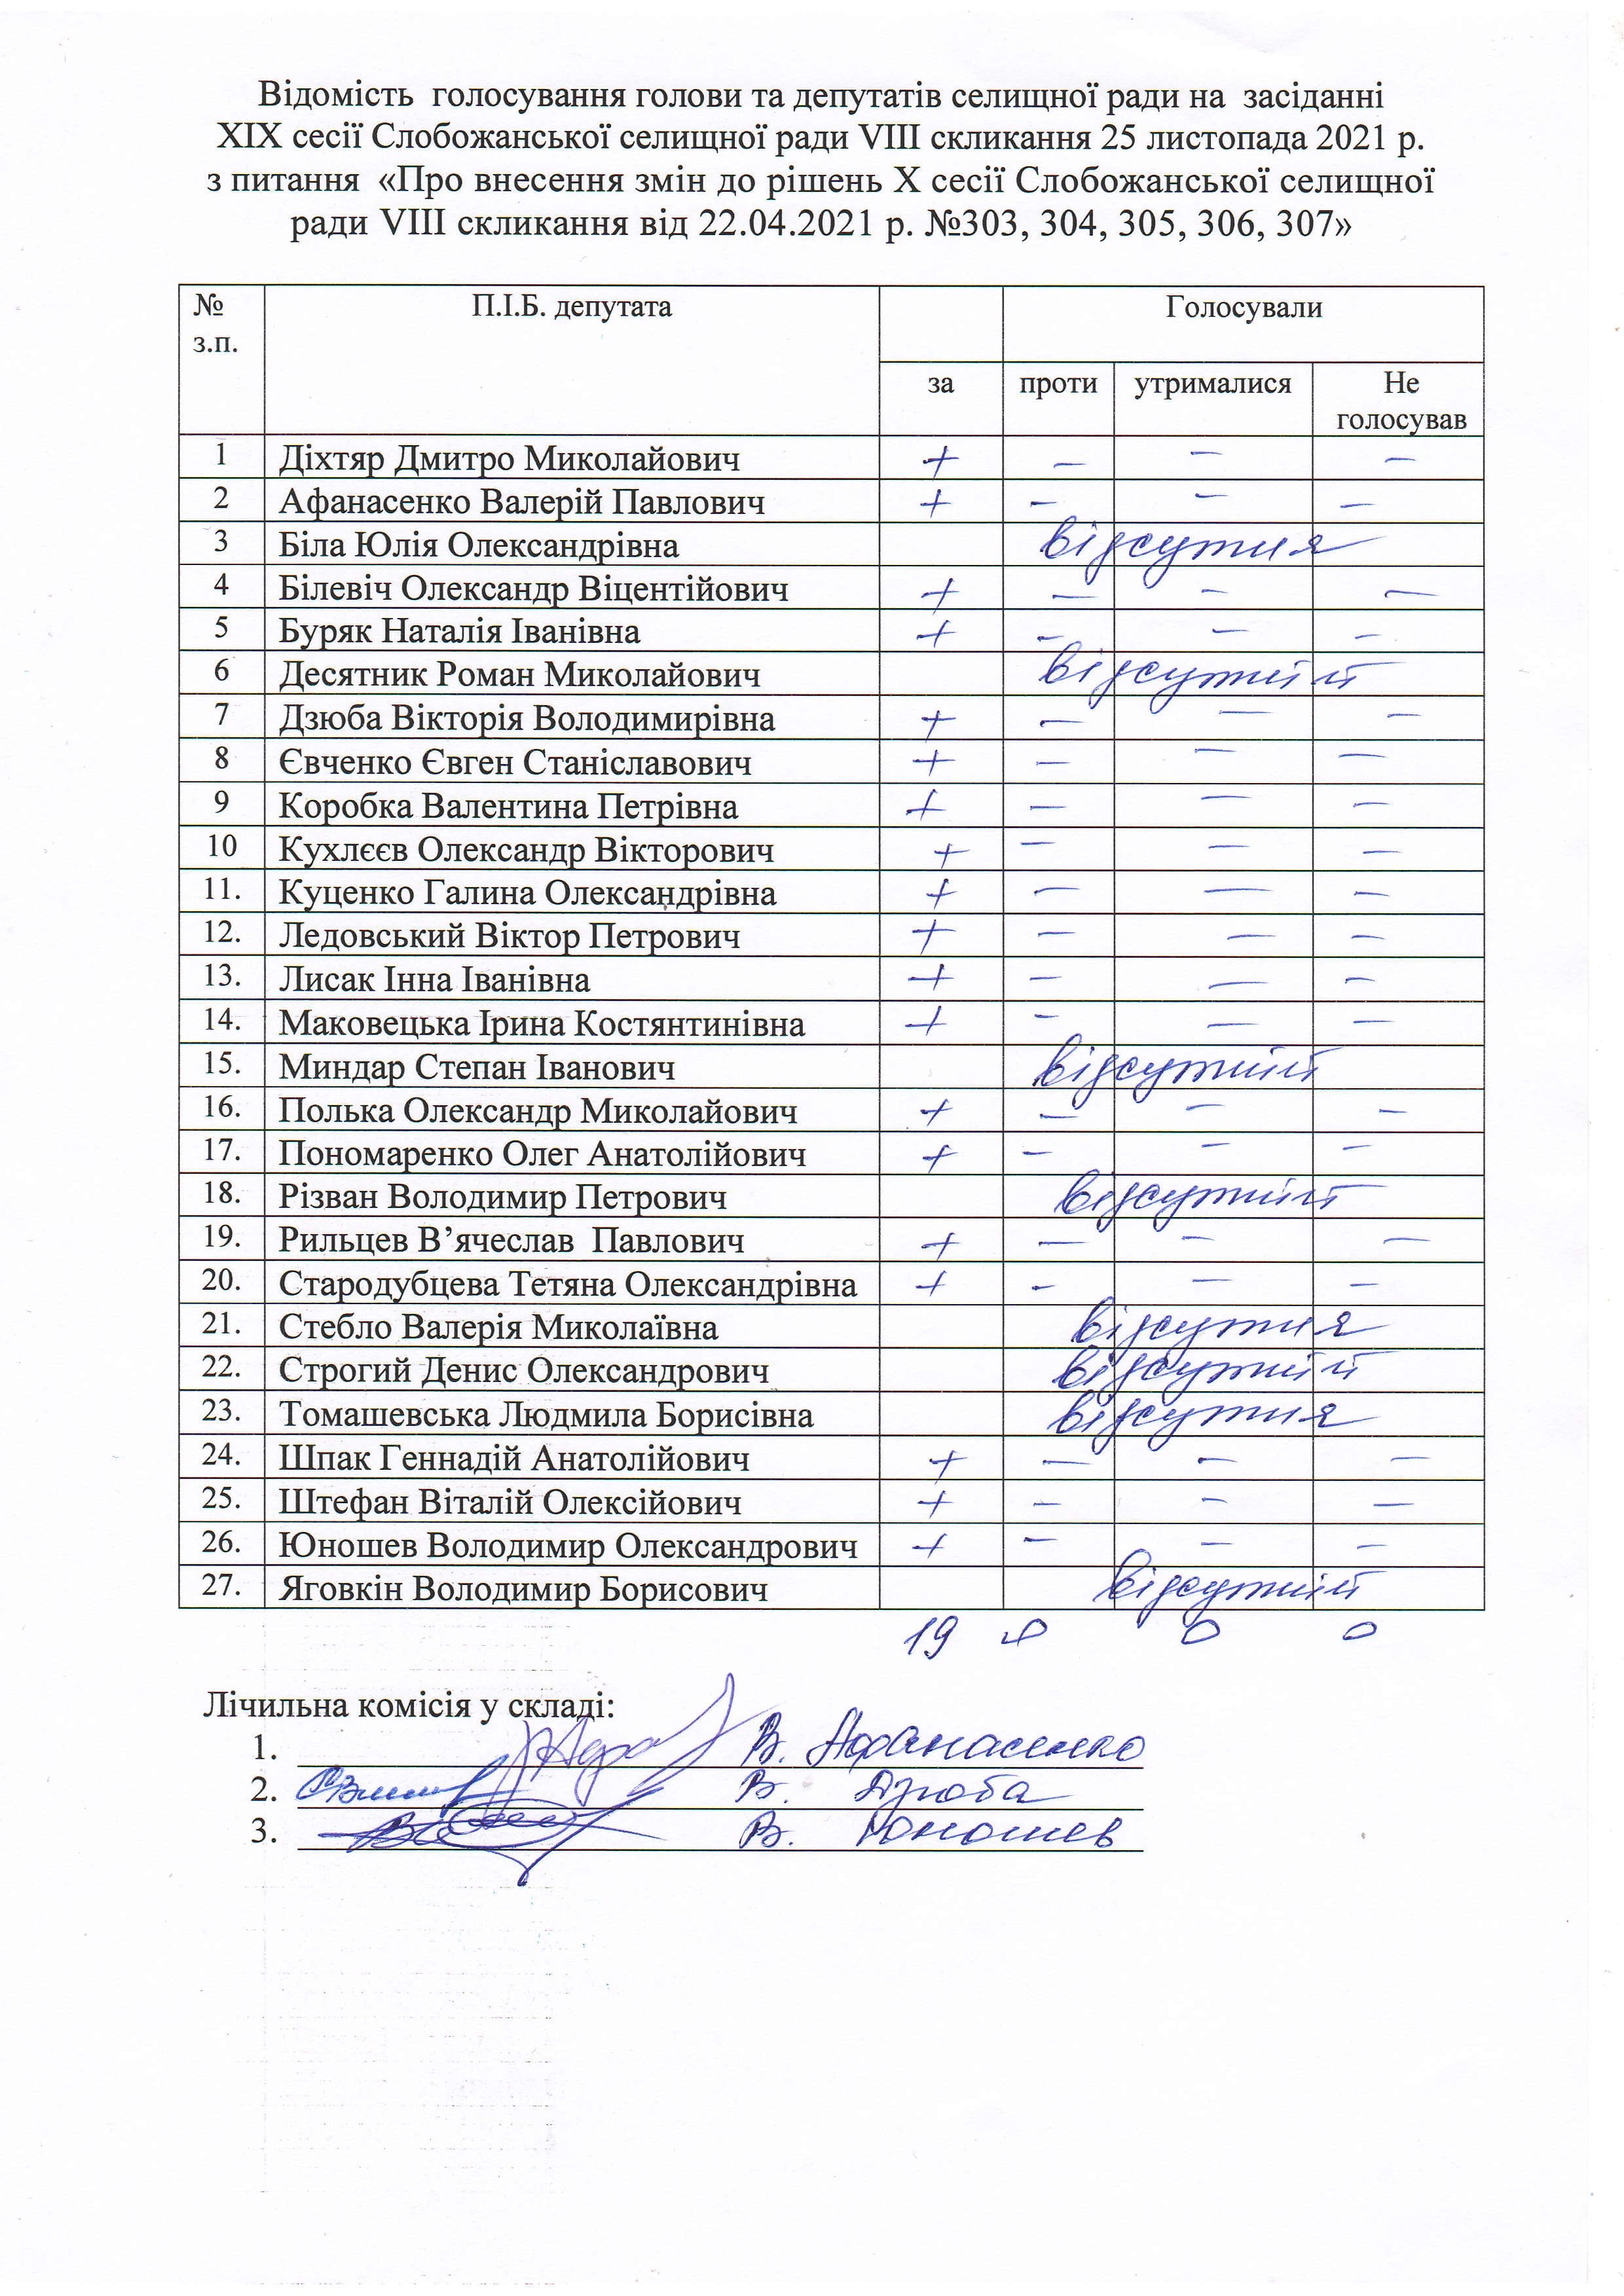 Відомість голосування голови та депутатів селищної ради на засіданні
XIX сесії Слобожанської селищної ради VIII скликання 25 листопада 2021 р.
з питання «Про внесення змін до рішень X сесії Слобожанської селищної
ради VIII скликання від 22.04.2021 р. №303, 304, 305, 306, 307»
№ з.п. П.І.Б. депутата Голосували
за проти утрималися Не голосував
1 Діхтяр Дмитро Миколайович + – – –
2 Афанасенко Валерій Павлович + – – –
3 Біла Юлія Олександрівна відсутня
4 Білевіч Олександр Віцентійович + – – –
5 Буряк Наталія Іванівна + – – –
6 Десятник Роман Миколайович відсутній
7 Дзюба Вікторія Володимирівна + – – –
8 Євченко Євген Станіславович + – – –
9 Коробка Валентина Петрівна + – – –
10 Кухлєєв Олександр Вікторович + – – –
11. Куценко Галина Олександрівна + – – –
12. Ледовський Віктор Петрович + – – –
13. Лисак Інна Іванівна + – – –
14. Маковецька Ірина Костянтинівна + – – –
15. Миндар Степан Іванович відсутній
16. Полька Олександр Миколайович + – – –
17. Пономаренко Олег Анатолійович + – – –
18. Різван Володимир Петрович відсутній
19. Рильцев В’ячеслав Павлович + – – –
20. Стародубцева Тетяна Олександрівна + – – –
21. Стебло Валерія Миколаївна відсутня
22. Строгий Денис Олександрович відсутній
23. Томашевська Людмила Борисівна відсутня
24. Шпак Геннадій Анатолійович + – – –
25. Штефан Віталій Олексійович + – – –
26. Юношев Володимир Олександрович + – – –
27. Яговкін Володимир Борисович відсутній
19 0 0 0
Лічильна комісія у складі:
1. В. Афанасенко
2. В. Дзюба
3. В. Юношев